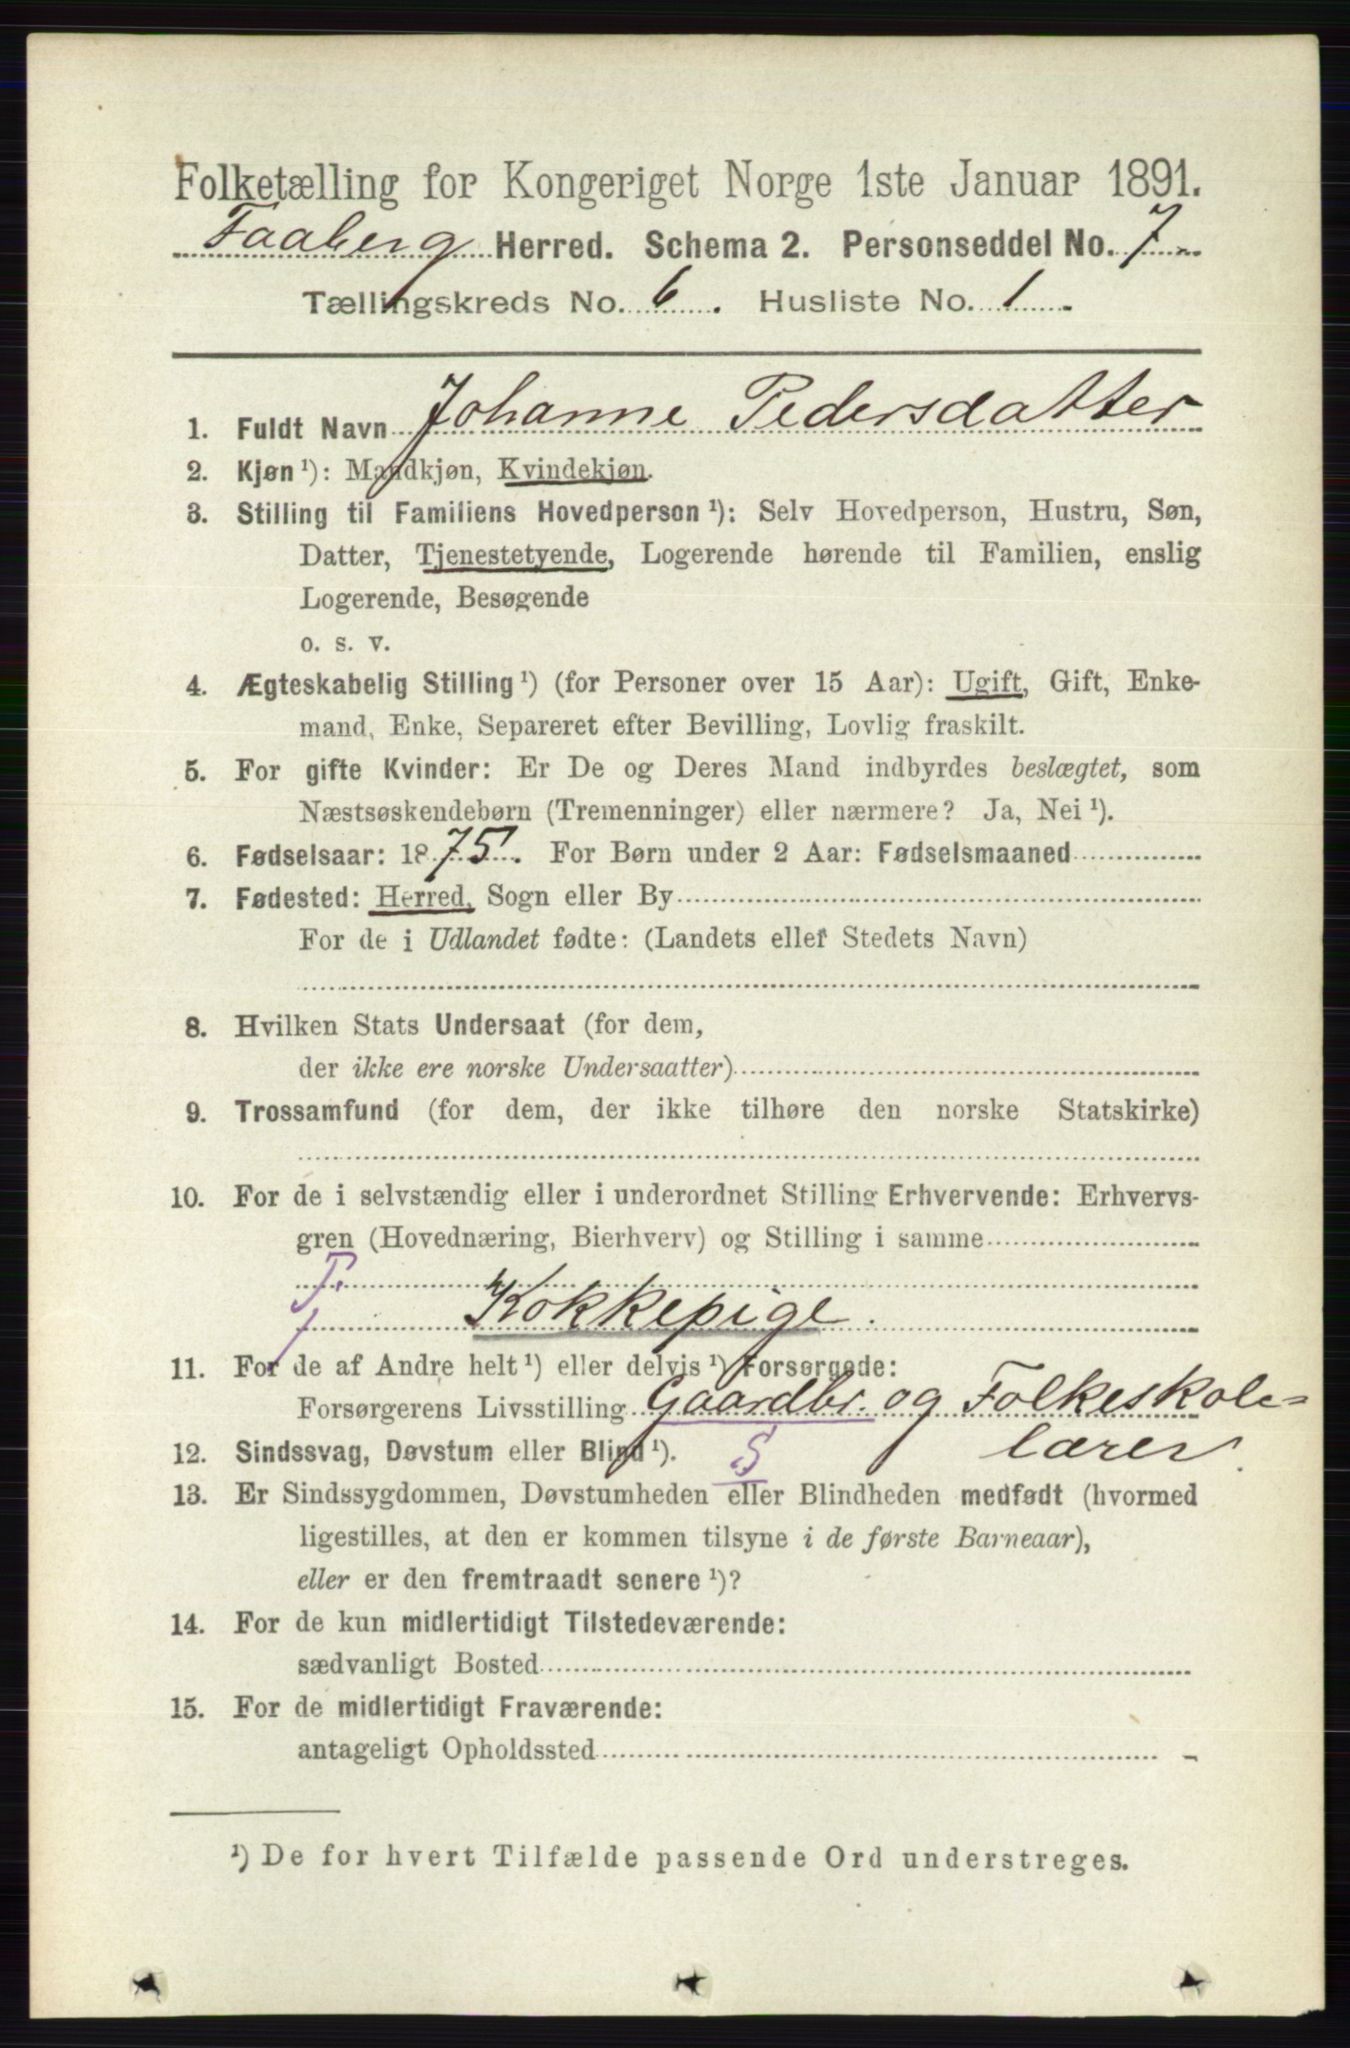 Folketælling for Kongeriget Norge 1ste Januar 1891.
Faaberg Herred. Schema 2. Personseddel No. 7
Tællingskreds No. 6. Husliste No. 1.
1. Fuldt Navn Johanne Pedersdatter
2. Kjøn ¹): Mandkjøn, Kvindekjøn.
3. Stilling til Familiens Hovedperson ¹): Selv Hovedperson, Hustru, Søn,
Datter, Tjenestetyende, Logerende hørende til Familien, enslig
Logerende, Besøgende
o. s. v.
4. Ægteskabelig Stilling ¹) (for Personer over 15 Aar): Ugift, Gift, Enke-
mand, Enke, Separeret efter Bevilling, Lovlig fraskilt.
5. For gifte Kvinder: Er De og Deres Mand indbyrdes beslægtet, som
Næstsøskendebørn (Tremenninger) eller nærmere? Ja, Nei ¹).
6. Fødselsaar: 1875. For Børn under 2 Aar: Fødselsmaaned
7. Fødested: Herred, Sogn eller By
For de i Udlandet fødte: (Landets eller Stedets Navn)
8. Hvilken Stats Undersaat (for dem,
der ikke ere norske Undersaatter)
9. Trossamfund (for dem, der ikke tilhøre den norske Statskirke)
10. For de i selvstændig eller i underordnet Stilling Erhvervende: Erhvervs-
gren (Hovednæring, Bierhverv) og Stilling i samme
T.
Kokkepige.
11. For de af Andre helt ¹) eller delvis ¹) Forsørgede:
Forsørgerens Livsstilling Gaardbr. og Folkeskole-
lærer.
12. Sindssvag, Døvstum eller Blind ¹). S
13. Er Sindssygdommen, Døvstumheden eller Blindheden medfødt (hvormed
ligestilles, at den er kommen tilsyne i de første Barneaar),
eller er den fremtraadt senere ¹)?
14. For de kun midlertidigt Tilstedeværende:
sædvanligt Bosted
15. For de midlertidigt Fraværende:
antageligt Opholdssted
¹) De for hvert Tilfælde passende Ord understreges.